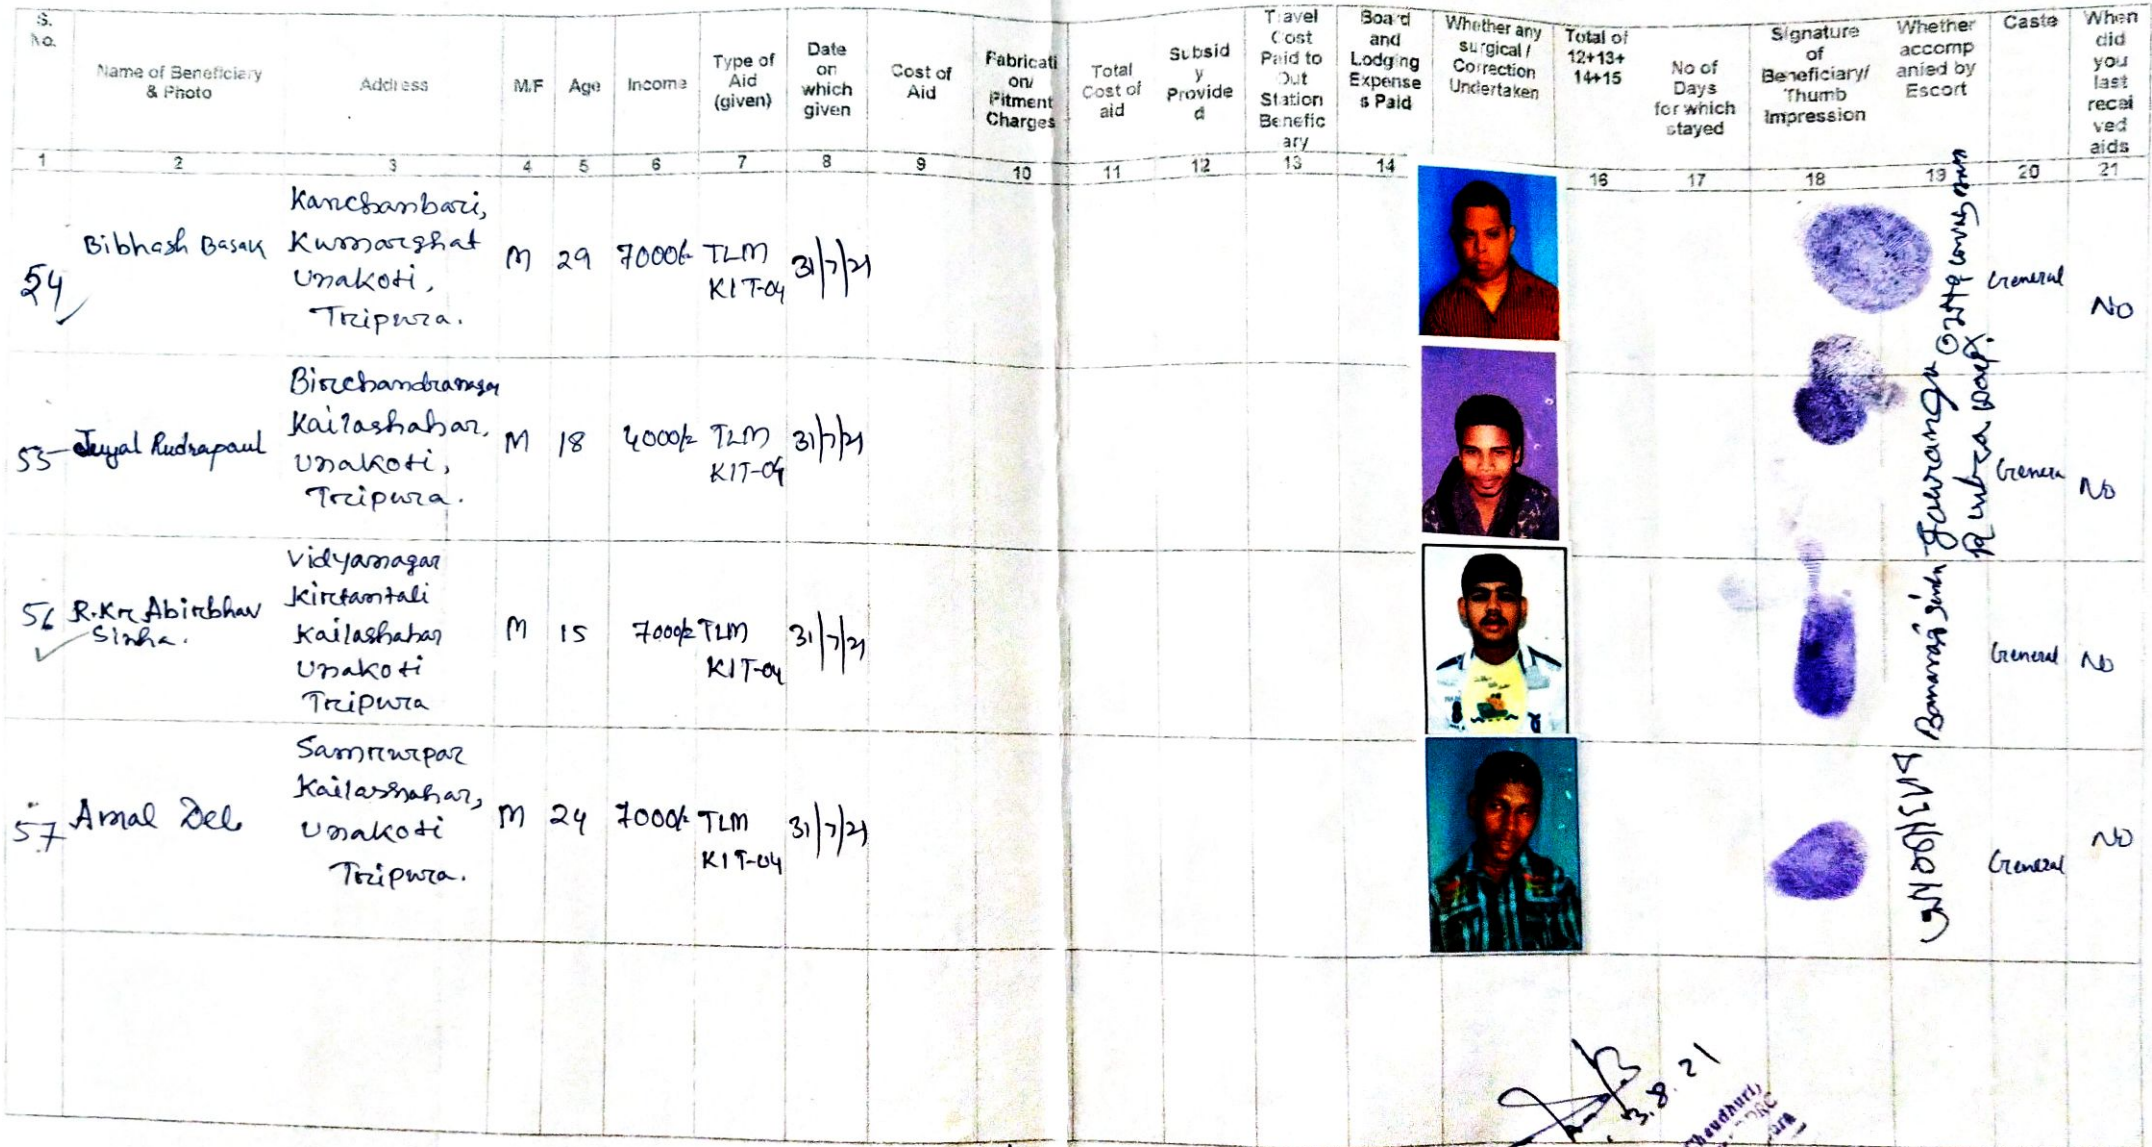 S. No.
Name of Beneficiary & Photo
Address
M/F
Age
Income
Type of Aid (given)
Date on which given
Cost of Aid
Fabricati on/ Fitment Charges
Total Cost of aid
Subsid y Provide d
Travel Cost Paid to Out Station Benefic ary
Board and Lodging Expense s Paid
Whether any surgical / Correction Undertaken
Total of 12+13+ 14+15
No of Days for which stayed
Signature of Beneficiary/ Thumb Impression
Whether accomp anied by Escort
Caste
When did you last recei ved aids
1 2 3 4 5 6 7 8 9 10 11 12 13 14 16 17 18 19 20 21
54 Bibhash Basak
Kanchanbari,
Kumarghat
Unakoti,
Tripura.
M 29 7000/- TLM KIT-04 31/7/21
General No
55 Jugal Rudrapaul
Birchandranagar
Kailashahar,
Unakoti,
Tripura.
M 18 4000/- TLM KIT-04 31/7/21
Genera No
56 R.Kr Abirbhav Sinha.
Vidyanagar
Kirtantali
Kailashahar
Unakoti
Tripura
M 15 7000/- TLM KIT-04 31/7/21
General No
57 Amal Deb
Samrurpar
Kailashahar,
Unakoti
Tripura.
M 24 7000/- TLM KIT-04 31/7/21
General No
3.8.21